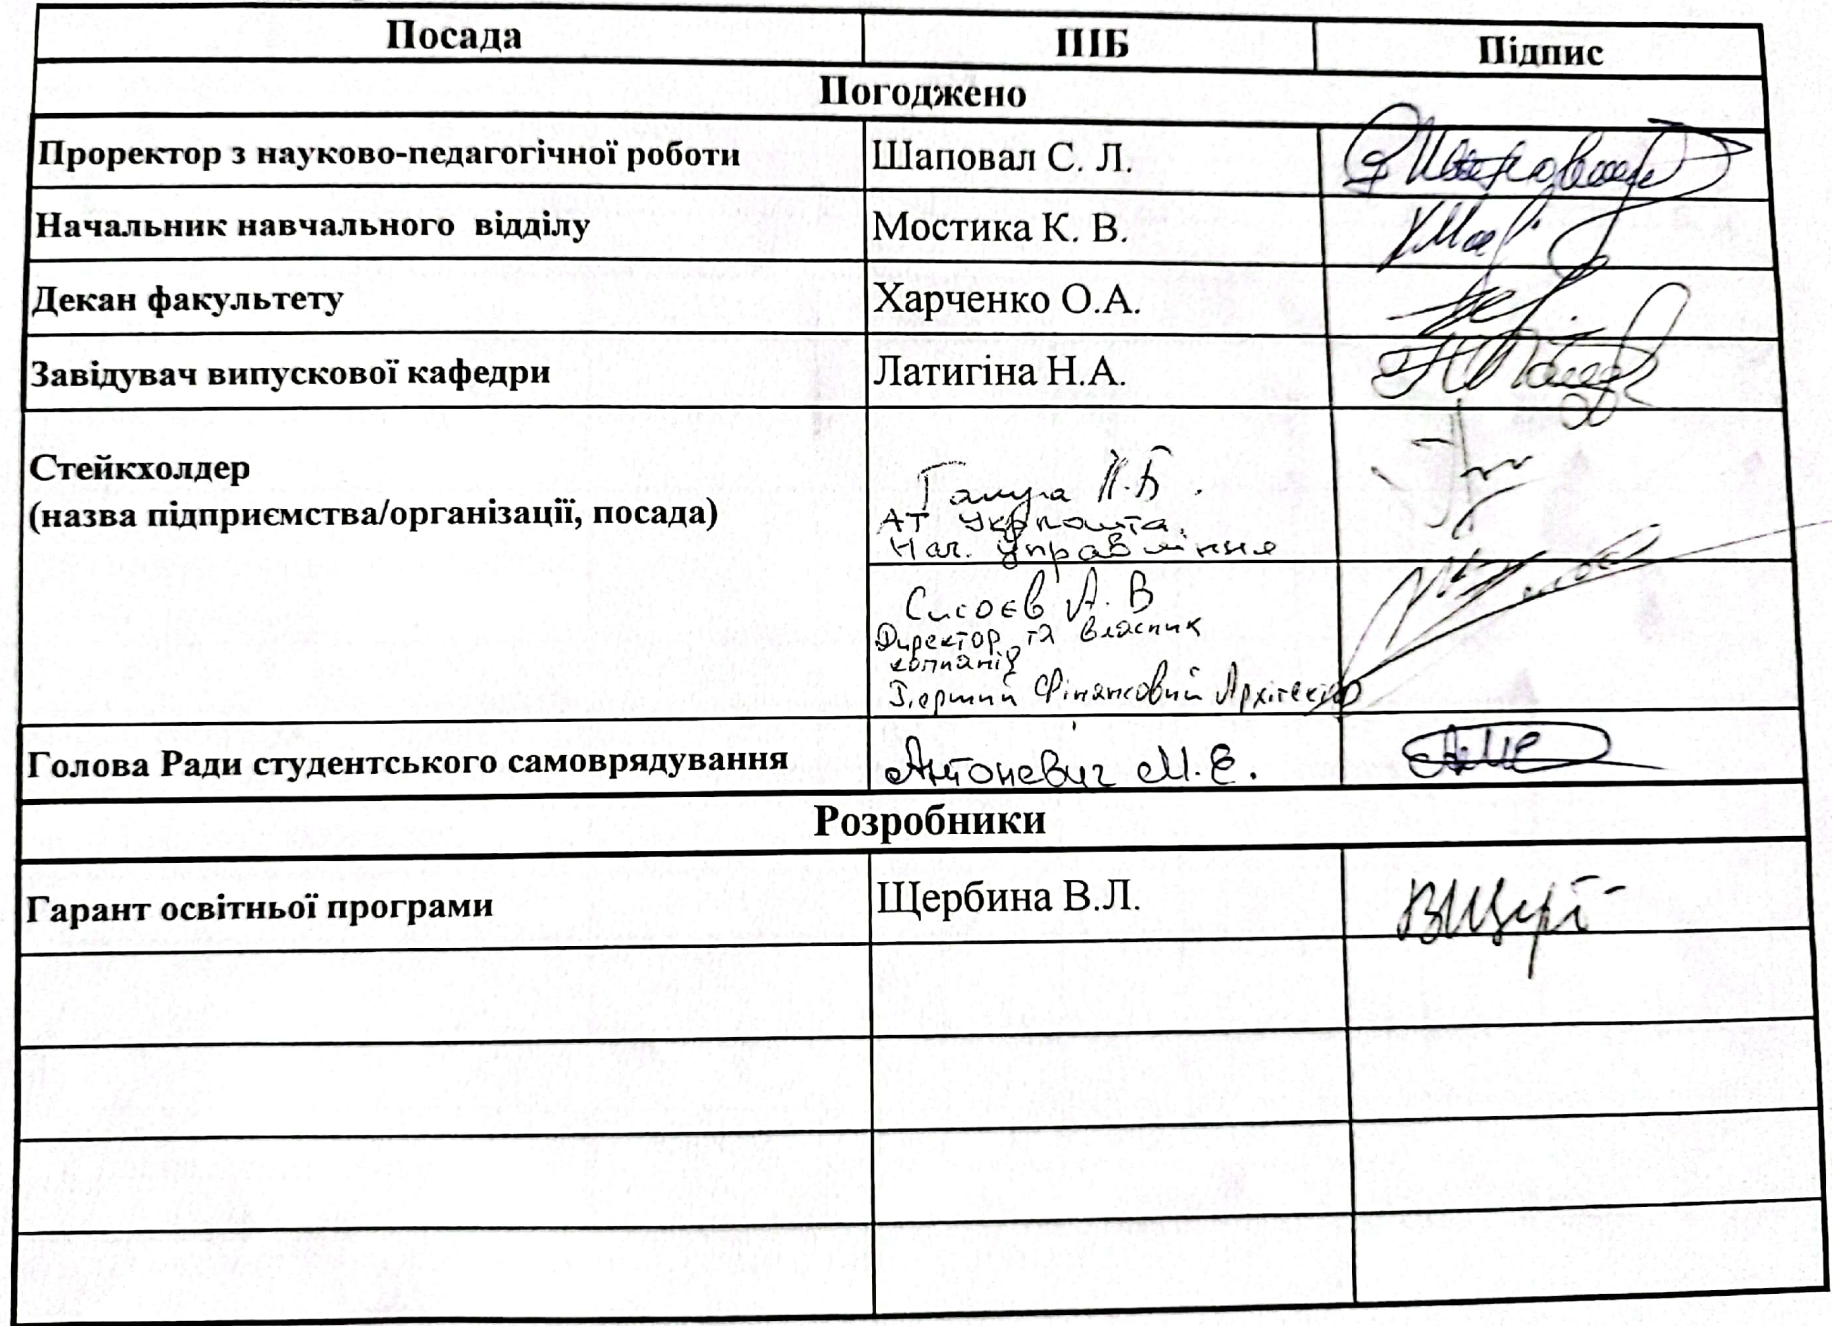 Посада ПІБ Підпис
Погоджено
Проректор з науково-педагогічної роботи Шаповал С. Л.
Начальник навчального відділу Мостика К. В.
Декан факультету Харченко О.А.
Завідувач випускової кафедри Латигіна Н.А.
Стейкхолдер
(назва підприємства/організації, посада)
АТ Укрпошта.
Нач. Управління
Сисоєв А. В
Директор та власник
копанії
Перший Фінансовий Архітектор
Голова Ради студентського самоврядування Антоневич М.Е.
Розробники
Гарант освітньої програми Щербина В.Л.